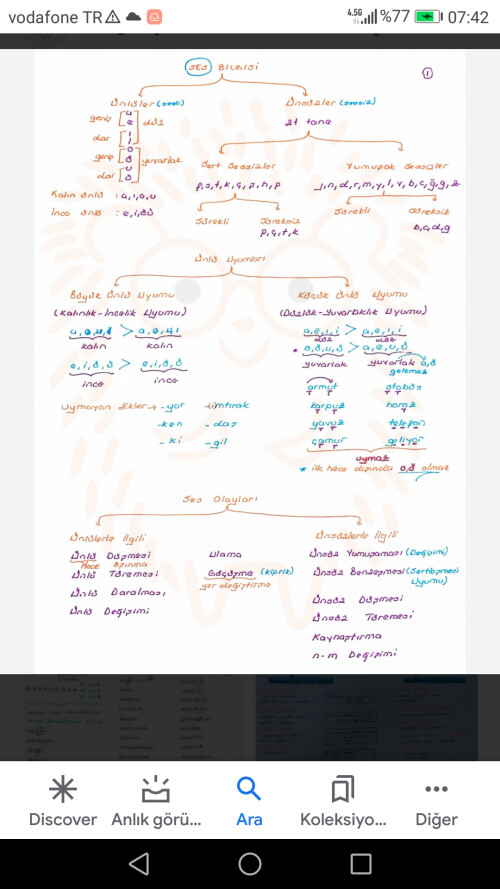 vodafone TR 4.5G %77 07:42
SES BİLGİSİ
1
Ünlüler (sesli)
Ünsüzler (sessiz)
geniş a e düz
dar ı i
geniş o ö yuvarlak
dar u ü
21 tane
Sert Sessizler
Yumuşak Sessizler
f,s,t,k,ç,ş,h,p
j,n,d,r,m,y,l,v,b,c,ğ,g,z
Kalın ünlü : a,ı,o,u
İnce ünlü : e,i,ö,ü
Sürekli
Süreksiz
p,ç,t,k
Sürekli
Süreksiz
b,c,d,g
Ünlü Uyumları
Büyük Ünlü Uyumu
(Kalınlık-İncelik Uyumu)
kalın
kalın
e,i,ö,ü > e,i,ö,ü
ince
ince
Uymayan Ekler → -yor -ımtırak
-ken -daş
-ki -gil
Küçük Ünlü Uyumu
(Düzlük-Yuvarlaklık Uyumu)
a,e,ı,i > a,e,ı,i
düz
düz
* o,ö,u,ü > a,e,u,ü
yuvarlak
yuvarlak o,ö
gelemez
armut otobüs
karpuz horoz
yavuz telefon
çamur geliyor
uymaz
* ilk hece dışında o,ö olmaz
Ses Olayları
Ünlülerle İlgili
Ünlü Düşmesi
Hece
Ünlü Türemesi
Ünlü Daralması
Ünlü Değişimi
Ulama
Göçüşme (kiprik)
yer değiştirme
Ünsüzlerle İlgili
Ünsüz Yumuşaması (Değişimi)
Ünsüz Benzeşmesi (Sertleşmesi
Uyumu)
Ünsüz Düşmesi
Ünsüz Türemesi
Kaynaştırma
n-m Değişimi
Discover
Anlık görü...
Ara
Koleksiyo...
Diğer